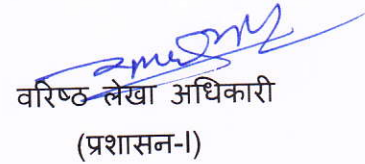 वरिष्ठ लेखा अधिकारी
(प्रशासन-I)